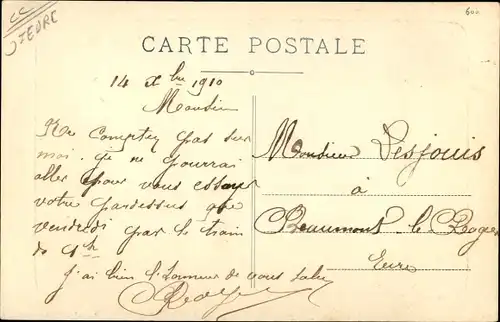 EURE
600
CARTE POSTALE
14 Xbre 1910
Monsieur
Ne Comptez pas sur
moi. je ne pourrai
aller pour vous essayer
votre pardessus que
vendredi par le train
de 9h
j'ai bien l'honneur de vous saluer
Monsieur Desjouis
à
Beaumont-le-Roger
Eure